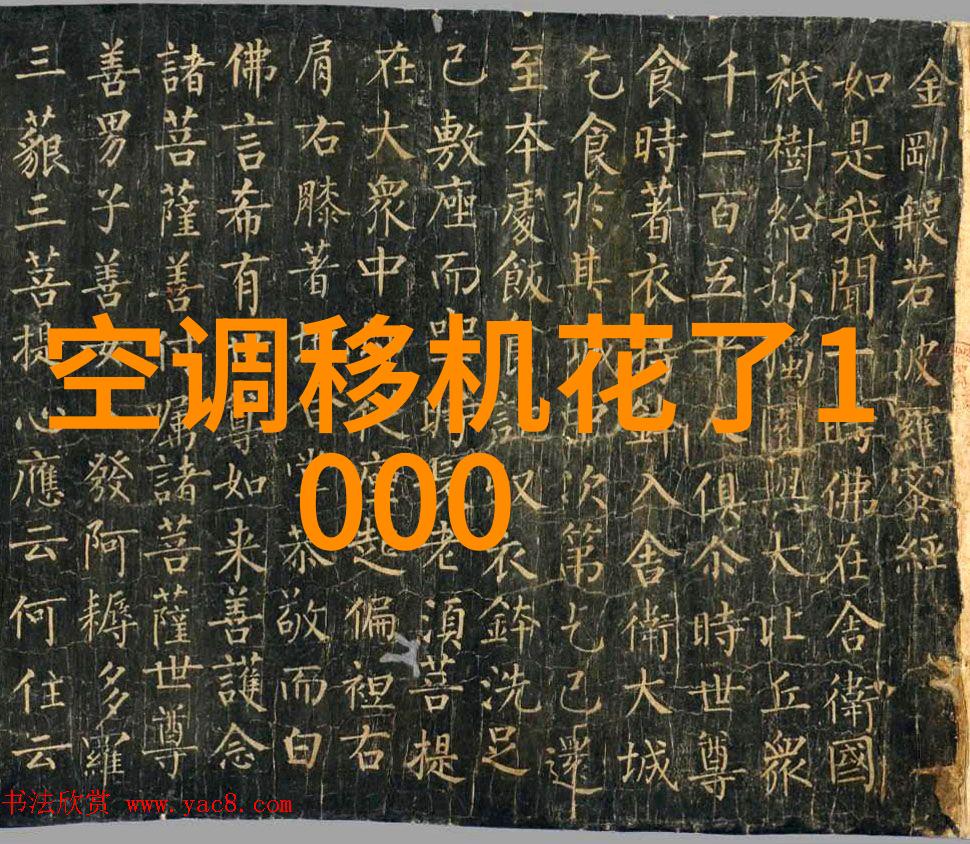 金剛般若波羅蜜經
如是我聞一時佛在舍衛國
祇樹給孤獨園與大比丘眾
千二百五十人俱尒時世尊
食時著衣持鉢入舍衛大城
乞食於其城中次第乞已還
至本處飯食訖收衣鉢洗足
已敷座而坐時長老須菩提
在大眾中即從座起偏袒右
肩右膝著地合掌恭敬而白
佛言希有世尊如来善護念
諸菩薩善付囑諸菩薩世尊
善男子善女人發阿耨多羅
三藐三菩提心應云何住云
空调移机花了1
000
书法欣赏 www.yac8.com